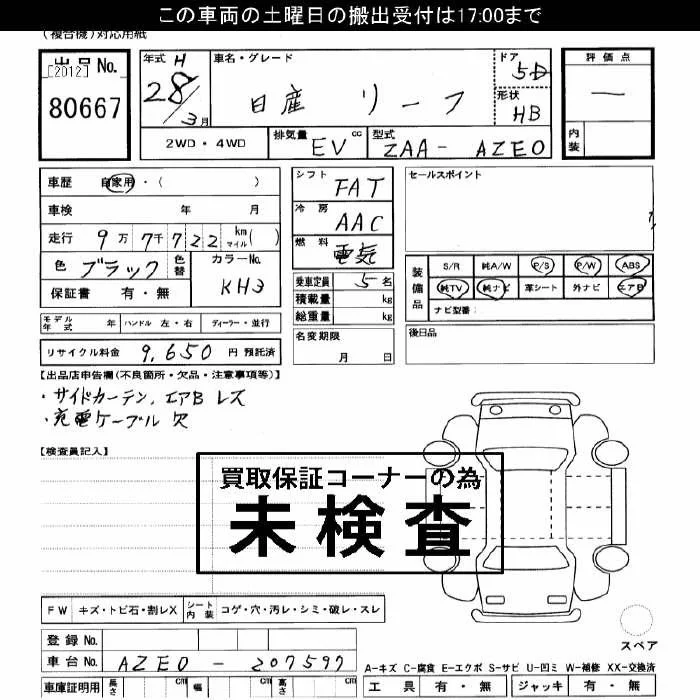 この車両の土曜日の搬出受付は17:00まで
(複合機)対応用紙
出品No.
[2012]
80667
年式 H
28/3月
車名・グレード
日産 リーフ
ドア
5D
形状
HB
評価点
—
内装
2WD・4WD
排気量 EV cc
型式 ZAA- AZE0
車歴 自家用・( )
車検 年 月
走行 9万7千722 km マイル( )
色 ブラック 色替
カラーNo.
KH3
保証書 有・無
シフト FAT
冷房 AAC
燃料 電気
乗車定員 5名
積載量 kg
総重量 kg
名変期限
月 日
セールスポイント
装備品
S/R 純A/W P/S P/W ABS
純TV 純ナビ 革シート 外ナビ エアB
ナビ型番:
後日品
モデル年式 年 ハンドル 左・右 ディーラー・並行
リサイクル料金 9,650 円 預託済
【出品店申告欄(不良箇所・欠品・注意事項等)】
・サイドカーテン,エアB レス
・充電ケーブル 欠
【検査員記入】
買取保証コーナーの為
未検査
FW キズ・トビ石・割レX シート内装 コゲ・穴・汚レ・シミ・破レ・スレ
登録No.
車台No. AZE0 - 207597
車庫証明用 長さ cm 幅 cm 高さ cm
スペア
A-キズ C-腐食 E-エクボ S-サビ U-凹ミ W-補修 XX-交換済
工具 有・無 ジャッキ 有・無